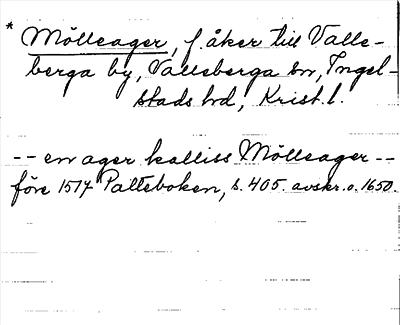 * Mölleager, f. åker till Valle-
berga by, Valleberga sn, Ingel-
stads hd, Krist. l.
-- en ager kalliss Mölleager --
före 1517 Palteboken, s. 405. avskr. o. 1650.